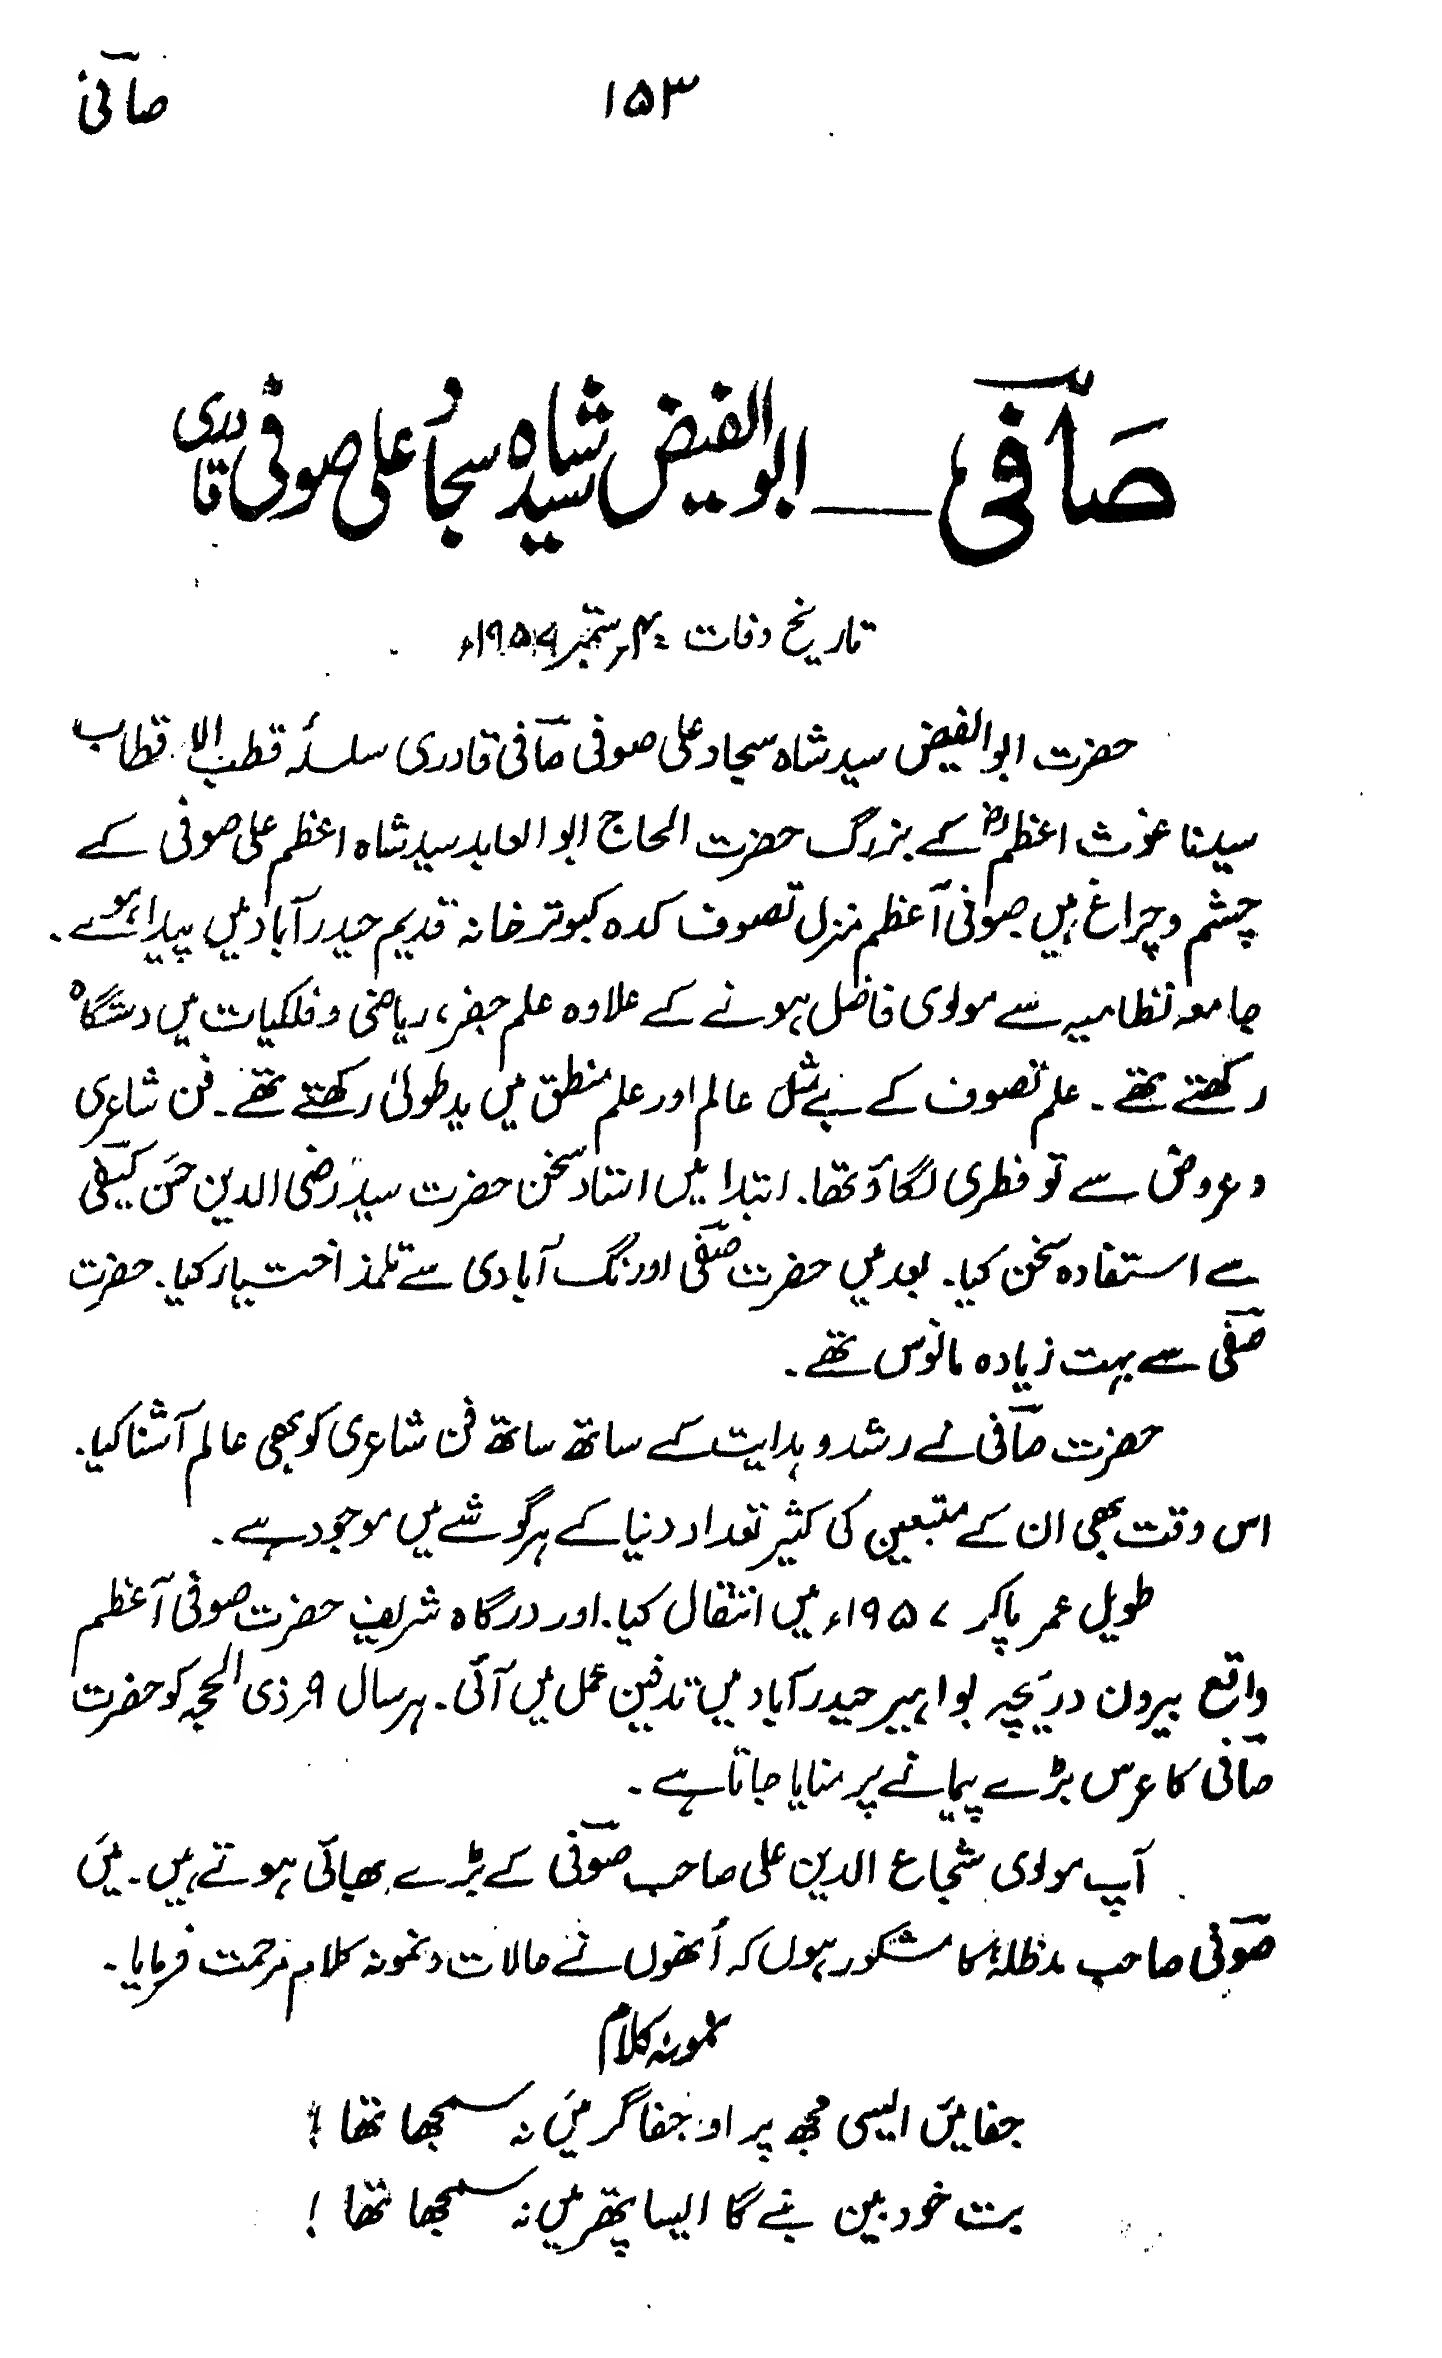 صافی ۱۵۳
صافی ــــ ابوالفیض سید شاہ سجاد علی صوفی قادری
تاریخ وفات :۔ ۴ ستمبر
حضرت ابوالفیض سید شاہ سجاد علی صوفی صافی قادری سلسلۂ قطب الاقطاب
سیدنا غوث اعظمؓ کے بزرگ حضرت الحاج ابوالعابد سید شاہ اعظم علی صوفی کے
چشم و چراغ ہیں صوفی اعظم منزل تصوف کدہ کبوتر خانہ قدیم حیدرآباد میں پیدا ہوے۔
جامعہ نظامیہ سے مولوی فاضل ہونے کے علاوہ علم جفر، ریاضی و فلکیات میں دستگاہ
رکھتے تھے۔ علم تصوف کے بے مثل عالم اور علم منطق میں ید طولیٰ رکھتے تھے۔ فن شاعری
و عروض سے تو فطری لگاؤ تھا۔ ابتدا میں استاد سخن حضرت سید رضی الدین حسن کیفی
سے استفادہ سخن کیا۔ بعد میں حضرت صفی اورنگ آبادی سے تلمذ اختیار کیا۔ حضرت
صفی سے بہت زیادہ مانوس تھے۔
حضرت صافی نے رشد و ہدایت کے ساتھ ساتھ فن شاعری کو بھی عالم آشنا کیا۔
اس وقت بھی ان کے متبعین کی کثیر تعداد دنیا کے ہر گوشے میں موجود ہے۔
طویل عمر پاکر ۱۹۵۷ء میں انتقال کیا۔ اور درگاہ شریف حضرت صوفی اعظم
واقع بیرون دریچہ بواہیر حیدرآباد میں تدفین عمل میں آئی۔ ہر سال ۹ ذی الحجہ کو حضرت
صافی کا عرس بڑے پیمانے پر منایا جاتا ہے۔
آپ مولوی شجاع الدین علی صاحب صوفی کے بڑے بھائی ہوتے ہیں۔ میں
صوفی صاحب مدظلہٗ کا مشکور ہوں کہ اُنھوں نے حالات و نمونہ کلام مرحمت فرمایا۔
نمونہ کلام
جفائیں ایسی مجھ پر او جفا گر میں نہ سمجھا تھا !
بت خود بین بنے گا ایسا پتھر میں نہ سمجھا تھا !